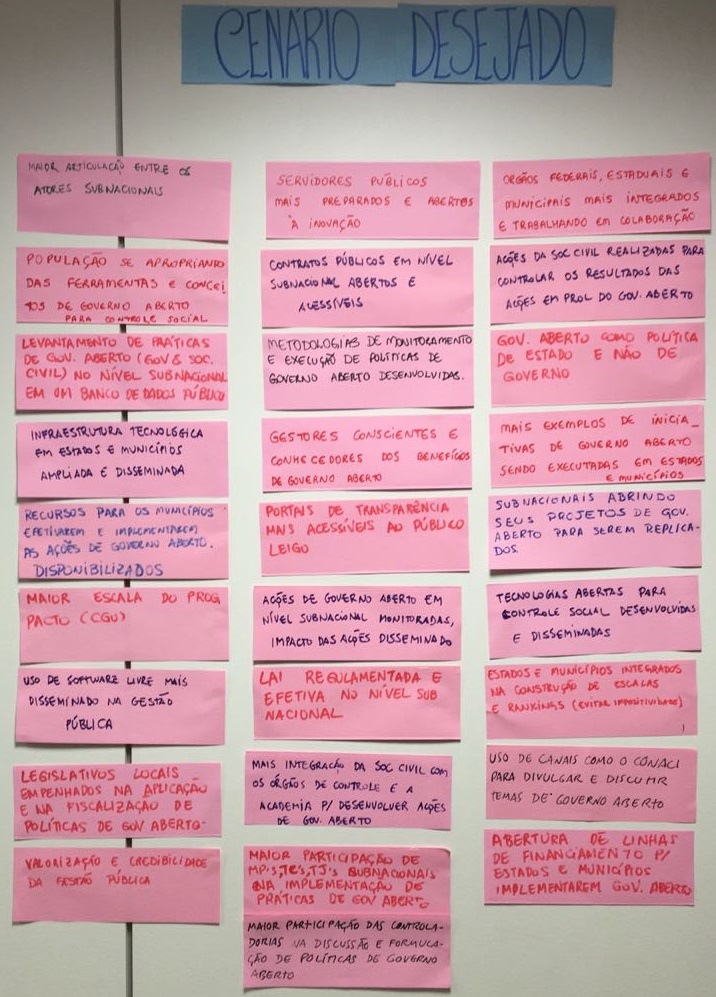 CENÁRIO DESEJADO
MAIOR ARTICULAÇÃO ENTRE OS
ATORES SUBNACIONAIS
POPULAÇÃO SE APROPRIANDO
DAS FERRAMENTAS E CONCEI
TOS DE GOVERNO ABERTO
PARA CONTROLE SOCIAL
LEVANTAMENTO DE PRÁTICAS
DE GOV. ABERTO (GOV & SOC.
CIVIL) NO NÍVEL SUBNACIONAL
EM UM BANCO DE DADOS PÚBLICO
INFRAESTRUTURA TECNOLÓGICA
EM ESTADOS E MUNICÍPIOS
AMPLIADA E DISSEMINADA
RECURSOS PARA OS MUNICÍPIOS
EFETIVAREM E IMPLEMENTAREM
AS AÇÕES DE GOVERNO ABERTO.
DISPONIBILIZADOS
MAIOR ESCALA DO PROG
PACTO (CGU)
USO DE SOFTWARE LIVRE MAIS
DISSEMINADO NA GESTÃO
PÚBLICA
LEGISLATIVOS LOCAIS
EMPENHADOS NA APLICAÇÃO
E NA FISCALIZAÇÃO DE
POLÍTICAS DE GOV ABERTO.
VALORIZAÇÃO E CREDIBILIDADE
DA GESTÃO PÚBLICA
SERVIDORES PÚBLICOS
MAIS PREPARADOS E ABERTOS
À INOVAÇÃO
CONTRATOS PÚBLICOS EM NÍVEL
SUBNACIONAL ABERTOS E
ACESSÍVEIS
METODOLOGIAS DE MONITORAMENTO
E EXECUÇÃO DE POLÍTICAS DE
GOVERNO ABERTO DESENVOLVIDAS.
GESTORES CONSCIENTES E
CONHECEDORES DOS BENEFÍCIOS
DE GOVERNO ABERTO
PORTAIS DE TRANSPARÊNCIA
MAIS ACESSÍVEIS AO PÚBLICO
LEIGO
AÇÕES DE GOVERNO ABERTO EM
NÍVEL SUBNACIONAL MONITORADAS,
IMPACTO DAS AÇÕES DISSEMINADO
LAI REGULAMENTADA E
EFETIVA NO NÍVEL SUB
NACIONAL
MAIS INTEGRAÇÃO DA SOC CIVIL COM
OS ÓRGÃOS DE CONTROLE E A
ACADEMIA P/ DESENVOLVER AÇÕES
DE GOV. ABERTO
MAIOR PARTICIPAÇÃO DE
MP's, TC's, TJ's SUBNACIONAIS
NA IMPLEMENTAÇÃO DE
PRÁTICAS DE GOV ABERTO
MAIOR PARTICIPAÇÃO DAS CONTROLA-
DORIAS NA DISCUSSÃO E FORMULA-
ÇÃO DE POLÍTICAS DE GOVERNO
ABERTO
ORGÃOS FEDERAIS, ESTADUAIS E
MUNICIPAIS MAIS INTEGRADOS
E TRABALHANDO EM COLABORAÇÃO
AÇÕES DA SOC CIVIL REALIZADAS PARA
CONTROLAR OS RESULTADOS DAS
AÇÕES EM PROL DO GOV. ABERTO
GOV. ABERTO COMO POLÍTICA
DE ESTADO E NÃO DE
GOVERNO
MAIS EXEMPLOS DE INICIA_
TIVAS DE GOVERNO ABERTO
SENDO EXECUTADAS EM ESTADOS
E MUNICÍPIOS
SUBNACIONAIS ABRINDO
SEUS PROJETOS DE GOV.
ABERTO PARA SEREM REPLICA-
DOS.
TECNOLOGIAS ABERTAS PARA
CONTROLE SOCIAL DESENVOLVIDAS
E DISSEMINADAS
ESTADOS E MUNICÍPIOS INTEGRADOS
NA CONSTRUÇÃO DE ESCALAS
E RANKINGS (EVITAR IMPOSITIVIDADE)
USO DE CANAIS COMO O CONACI
PARA DIVULGAR E DISCUTIR
TEMAS DE GOVERNO ABERTO
ABERTURA DE LINHAS
DE FINANCIAMENTO P/
ESTADOS E MUNICÍPIOS
IMPLEMENTAREM GOV. ABERTO